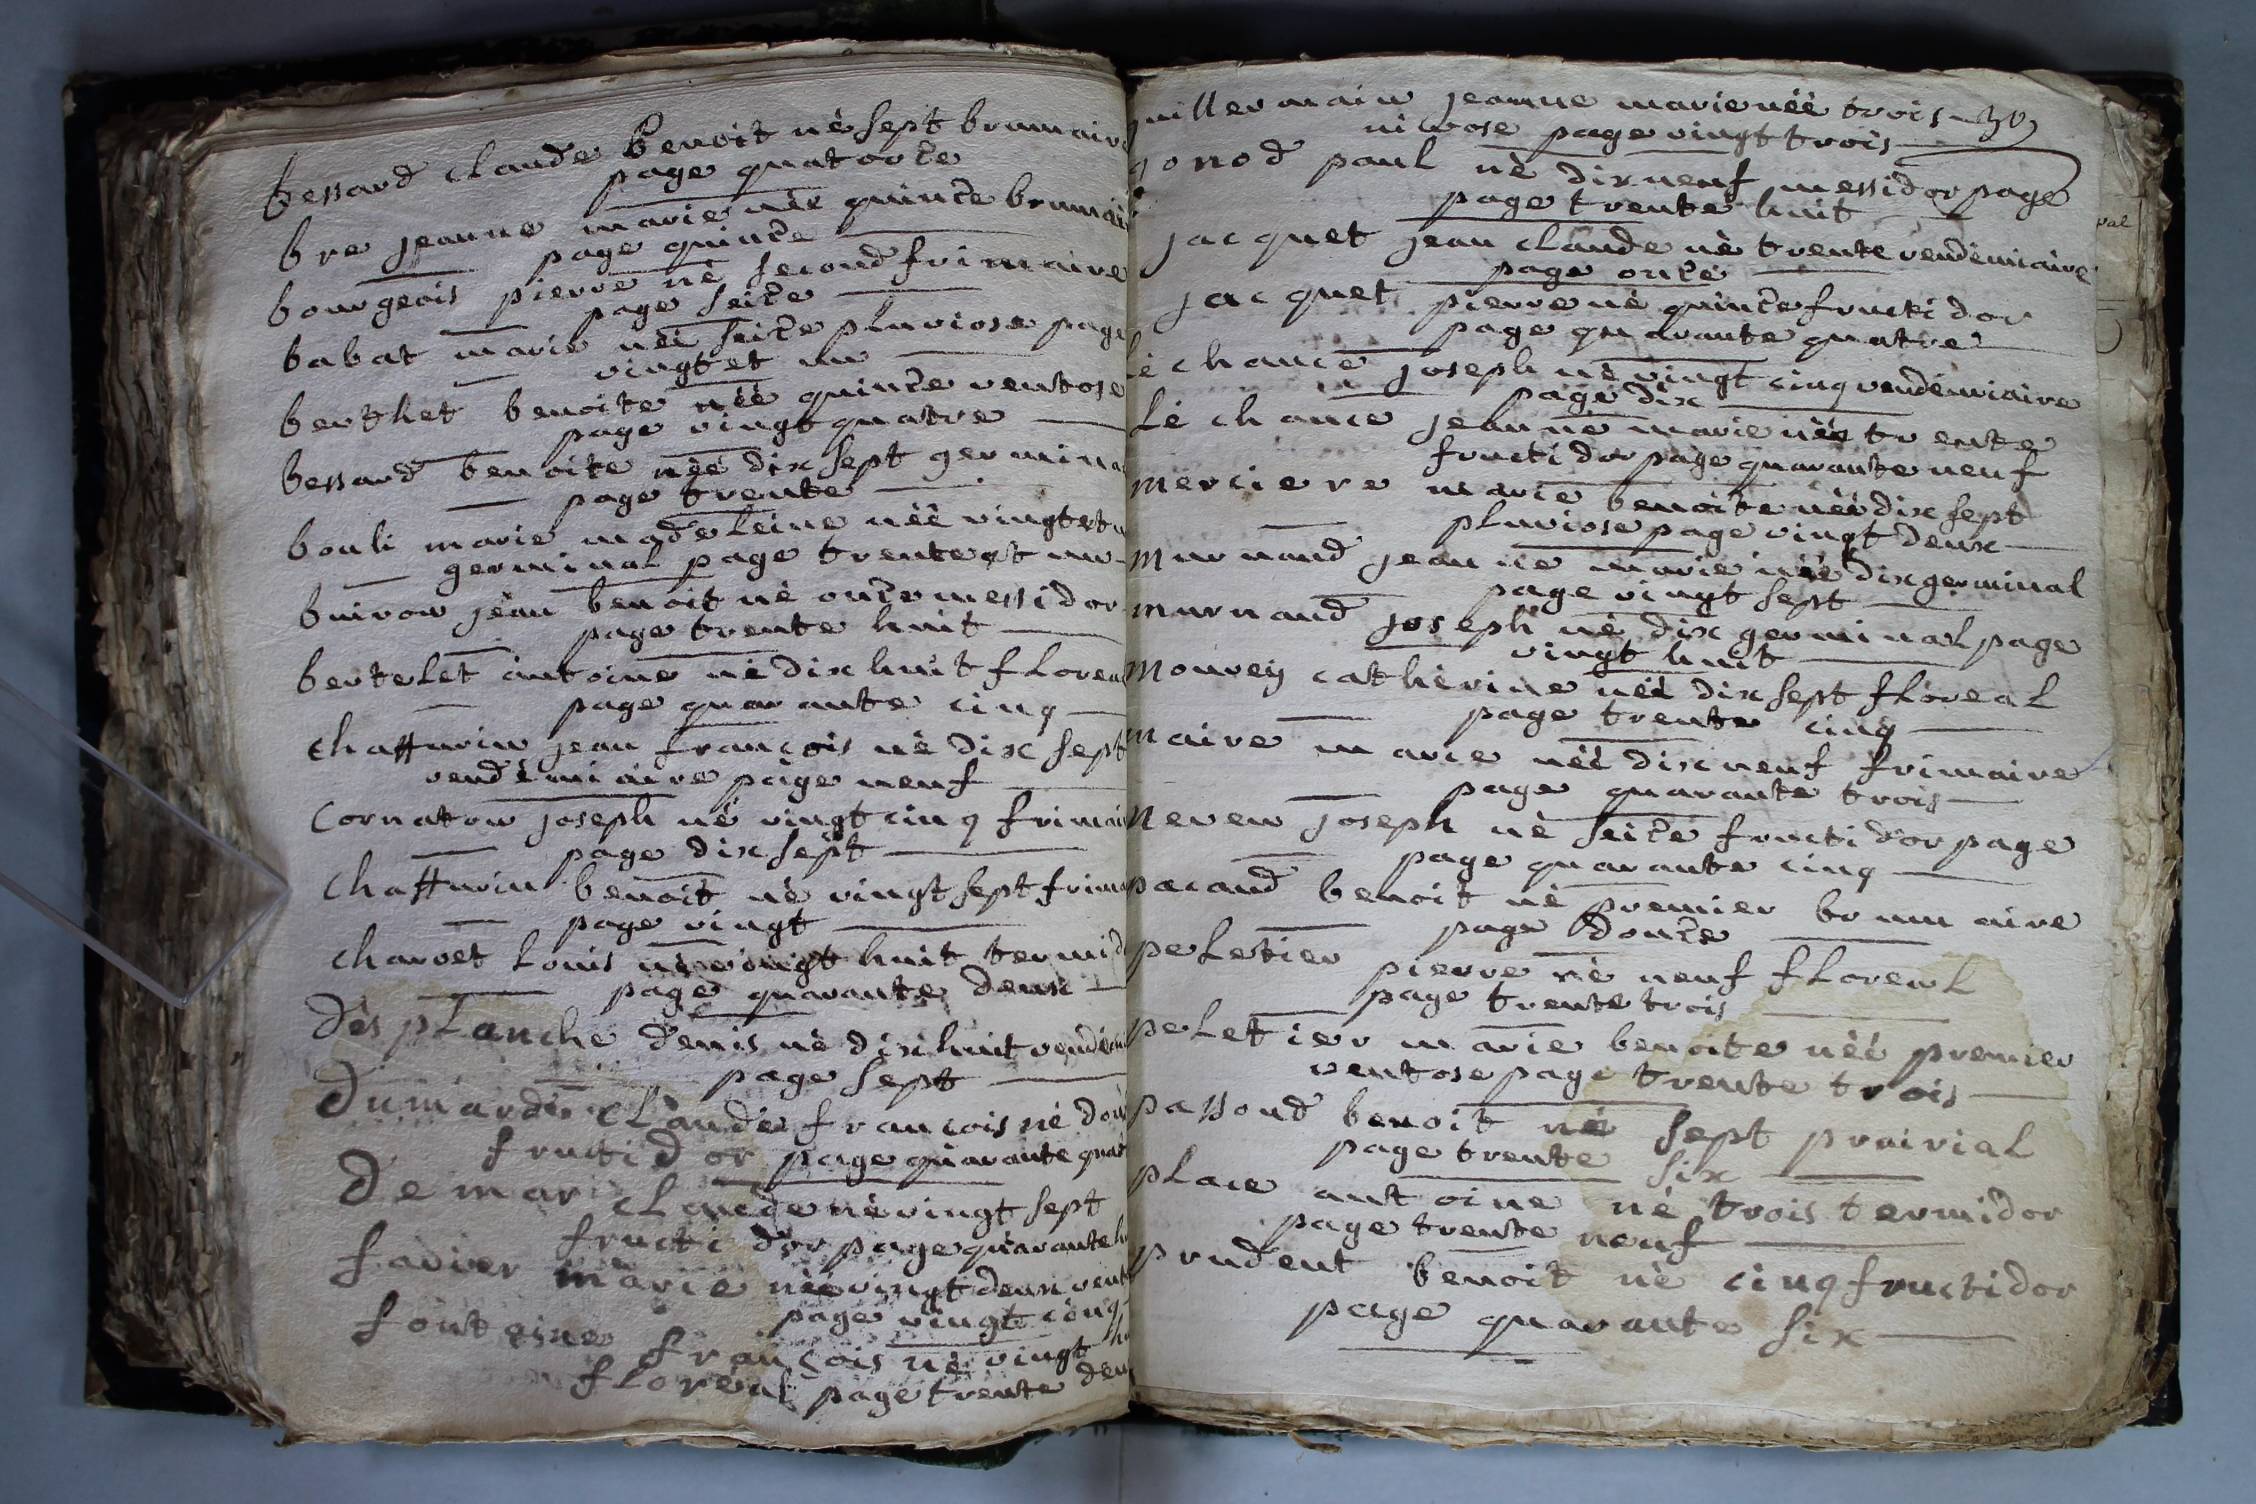 bessard claude benoit né sept brumaire
page quatorze
bre jeanne marie née quinze brumai
page quinze
bourgeois pierre né second frimaire
page seize
babat marie née seize pluviose page
vingt et un
berthet benoite née quinze ventose
page vingt quatre
bessard benoite née dix sept germina
page trente
bouli marie madeleine née vingt et u
germinal page trente et un
buiron jean benoit né onze messidor
page trente huit
bertelet antoine né dix huit florea
page quarante cinq
chaffurin jean françois né dix sept
vendémiaire page neuf
cornaton joseph né vingt cinq frimai
page dix sept
chaffurin benoit né vingt sept frima
page vingt
charvet louis né vingt huit termid
page quarante deux
des planche denis né dix huit vendémi
page sept
dumardi claude françois né douz
fructidor page quarante quat
de mar claude né vingt sept
fructidor page quarante h
favier marie née vingt deux vent
page vingt cinq
fontaine françois né vingt hu
floreal page trente deu
guillermain jeanne marie née trois
nivose page vingt trois
gonod paul né dix neuf messidor page
page trente huit
jacquet jean claude né trente vendémiaire
page onze
jacquet pierre né quinze fructidor
page quarante quatre
le chance joseph né vingt cinq vendémiaire
page dix
le chance jeanne marie née trente
fructidor page quarante neuf
merciere marie benoite née dix sept
pluviose page vingt deux
murnand jeanne marie née dix germinal
page vingt sept
murnand joseph né dix germinal page
vingt huit
mourey catherine née dix sept floreal
page trente cinq
maire marie née dix neuf frimaire
page quarante trois
neveu joseph né seize fructidor page
page quarante cinq
pacand benoit né premier brumaire
page douze
peletier pierre né neuf floreal
page trente trois
peletier marie benoite née premier
ventose page trente trois
passoud benoit né sept prairial
page trente six
place antoine né trois termidor
page trente neuf
prudent benoit né cinq fructidor
page quarante six
val